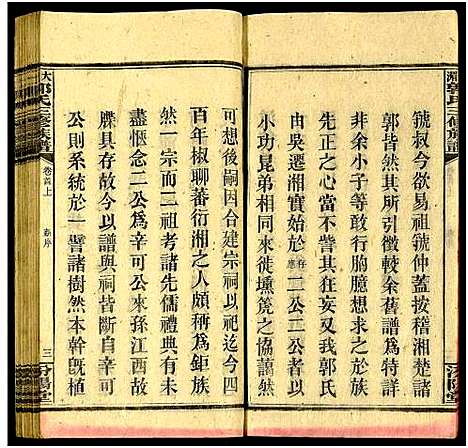 郭氏三修族譜
虢叔今欲易祖虢仲蓋按稽湘楚諸
郭皆然其所引徵較余舊譜爲特詳
非余小子等敢行胸臆想求之於族
先正之心當其狂妄又我郭氏
由吳遷湘實始於祥應二公二公者以
小功昆弟相同來徙壎箎之協藹然
可想後嗣因台建宗祠以祀迄今四
百年椒聊蕃衍湘之人頗稱爲鉅族
然一宗而二祖考諸先儒禮典實未
盡愜念二公爲辛可公來孫江西老
牒具存故今以譜與祠皆斷自辛可
公則系統於一譬諸樹然本幹既植
郭氏三修族譜
卷首上
序
三
汾陽堂